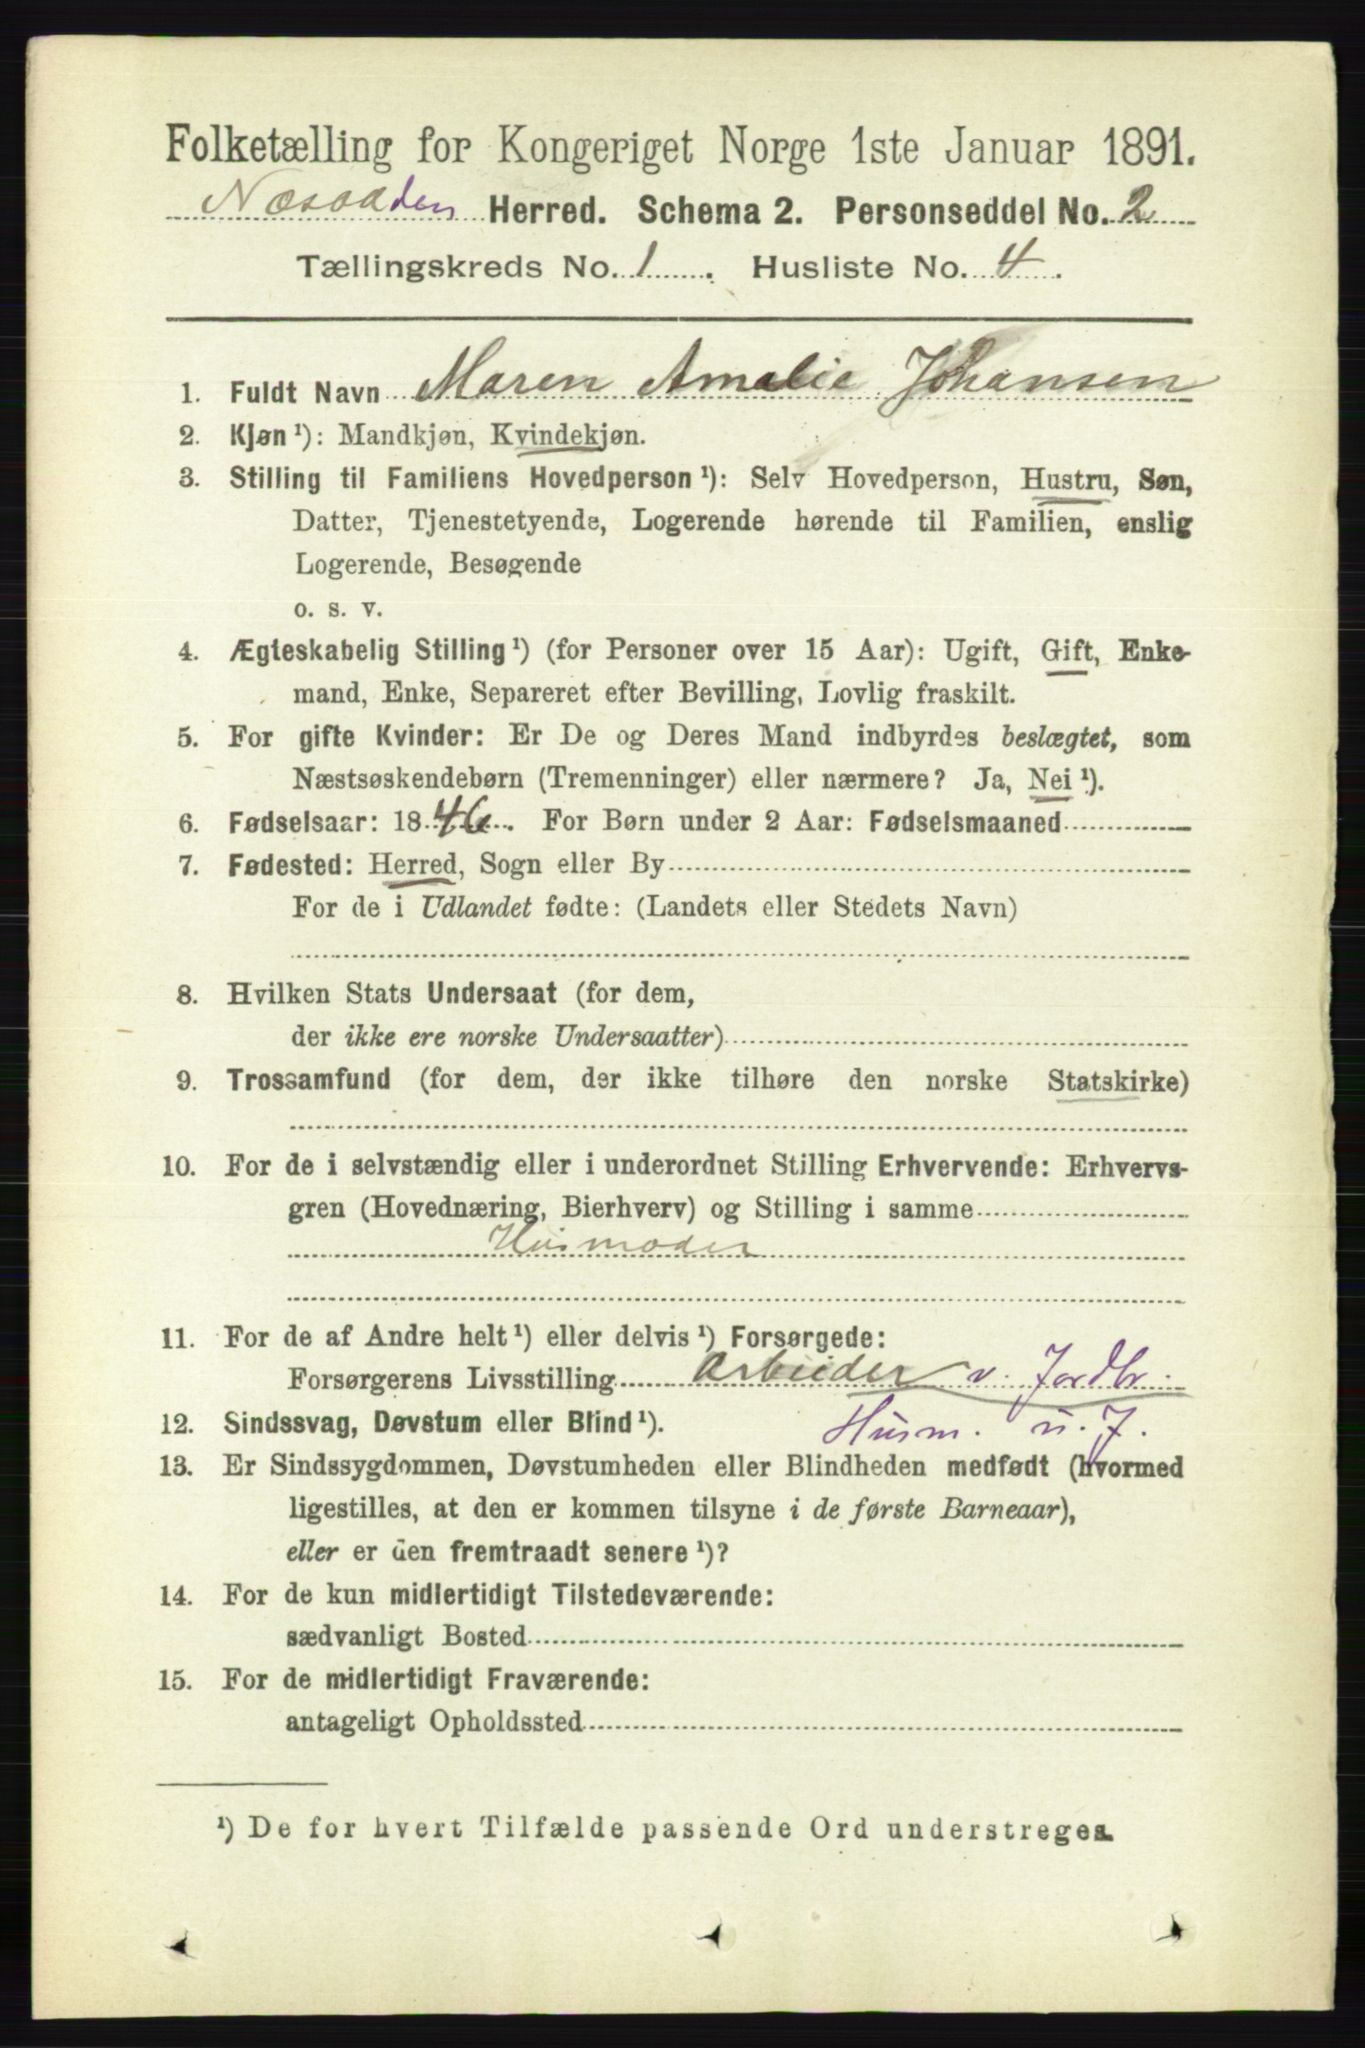 Folketælling for Kongeriget Norge 1ste Januar 1891.
Næsodden Herred. Schema 2. Personseddel No. 2
Tællingskreds No. 1. Husliste No. 4.
1. Fuldt Navn Maren Amalie Johansen
2. Kjøn¹): Mandkjøn, Kvindekjøn.
3. Stilling til Familiens Hovedperson¹): Selv Hovedperson, Hustru, Søn,
Datter, Tjenestetyende, Logerende hørende til Familien, enslig
Logerende, Besøgende
o. s. v.
4. Ægteskabelig Stilling¹) (for Personer over 15 Aar): Ugift, Gift, Enke-
mand, Enke, Separeret efter Bevilling, Lovlig fraskilt.
5. For gifte Kvinder: Er De og Deres Mand indbyrdes beslægtet, som
Næstsøskendebørn (Tremenninger) eller nærmere? Ja, Nei¹).
6. Fødselsaar: 1846. For Børn under 2 Aar: Fødselsmaaned
7. Fødested: Herred, Sogn eller By
For de i Udlandet fødte: (Landets eller Stedets Navn)
8. Hvilken Stats Undersaat (for dem,
der ikke ere norske Undersaatter)
9. Trossamfund (for dem, der ikke tilhøre den norske Statskirke)
10. For de i selvstændig eller i underordnet Stilling Erhvervende: Erhvervs-
gren (Hovednæring, Bierhverv) og Stilling i samme
Husmoder
11. For de af Andre helt¹) eller delvis¹) Forsørgede:
Forsørgerens Livsstilling Arbeider v. Jordbr.
12. Sindssvag, Døvstum eller Blind¹). Husm. u. J.
13. Er Sindssygdommen, Døvstumheden eller Blindheden medfødt (hvormed
ligestilles, at den er kommen tilsyne i de første Barneaar),
eller er den fremtraadt senere¹)?
14. For de kun midlertidigt Tilstedeværende:
sædvanligt Bosted
15. For de midlertidigt Fraværende:
antageligt Opholdssted
¹) De for hvert Tilfælde passende Ord understreges.